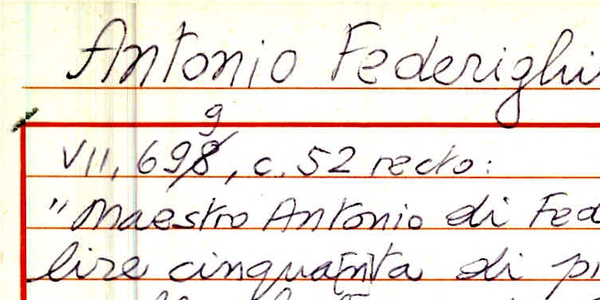 Antonio Federighi
VII, 699, c. 52 recto:
"Maestro Antonio di Fed
lire cinquanta di